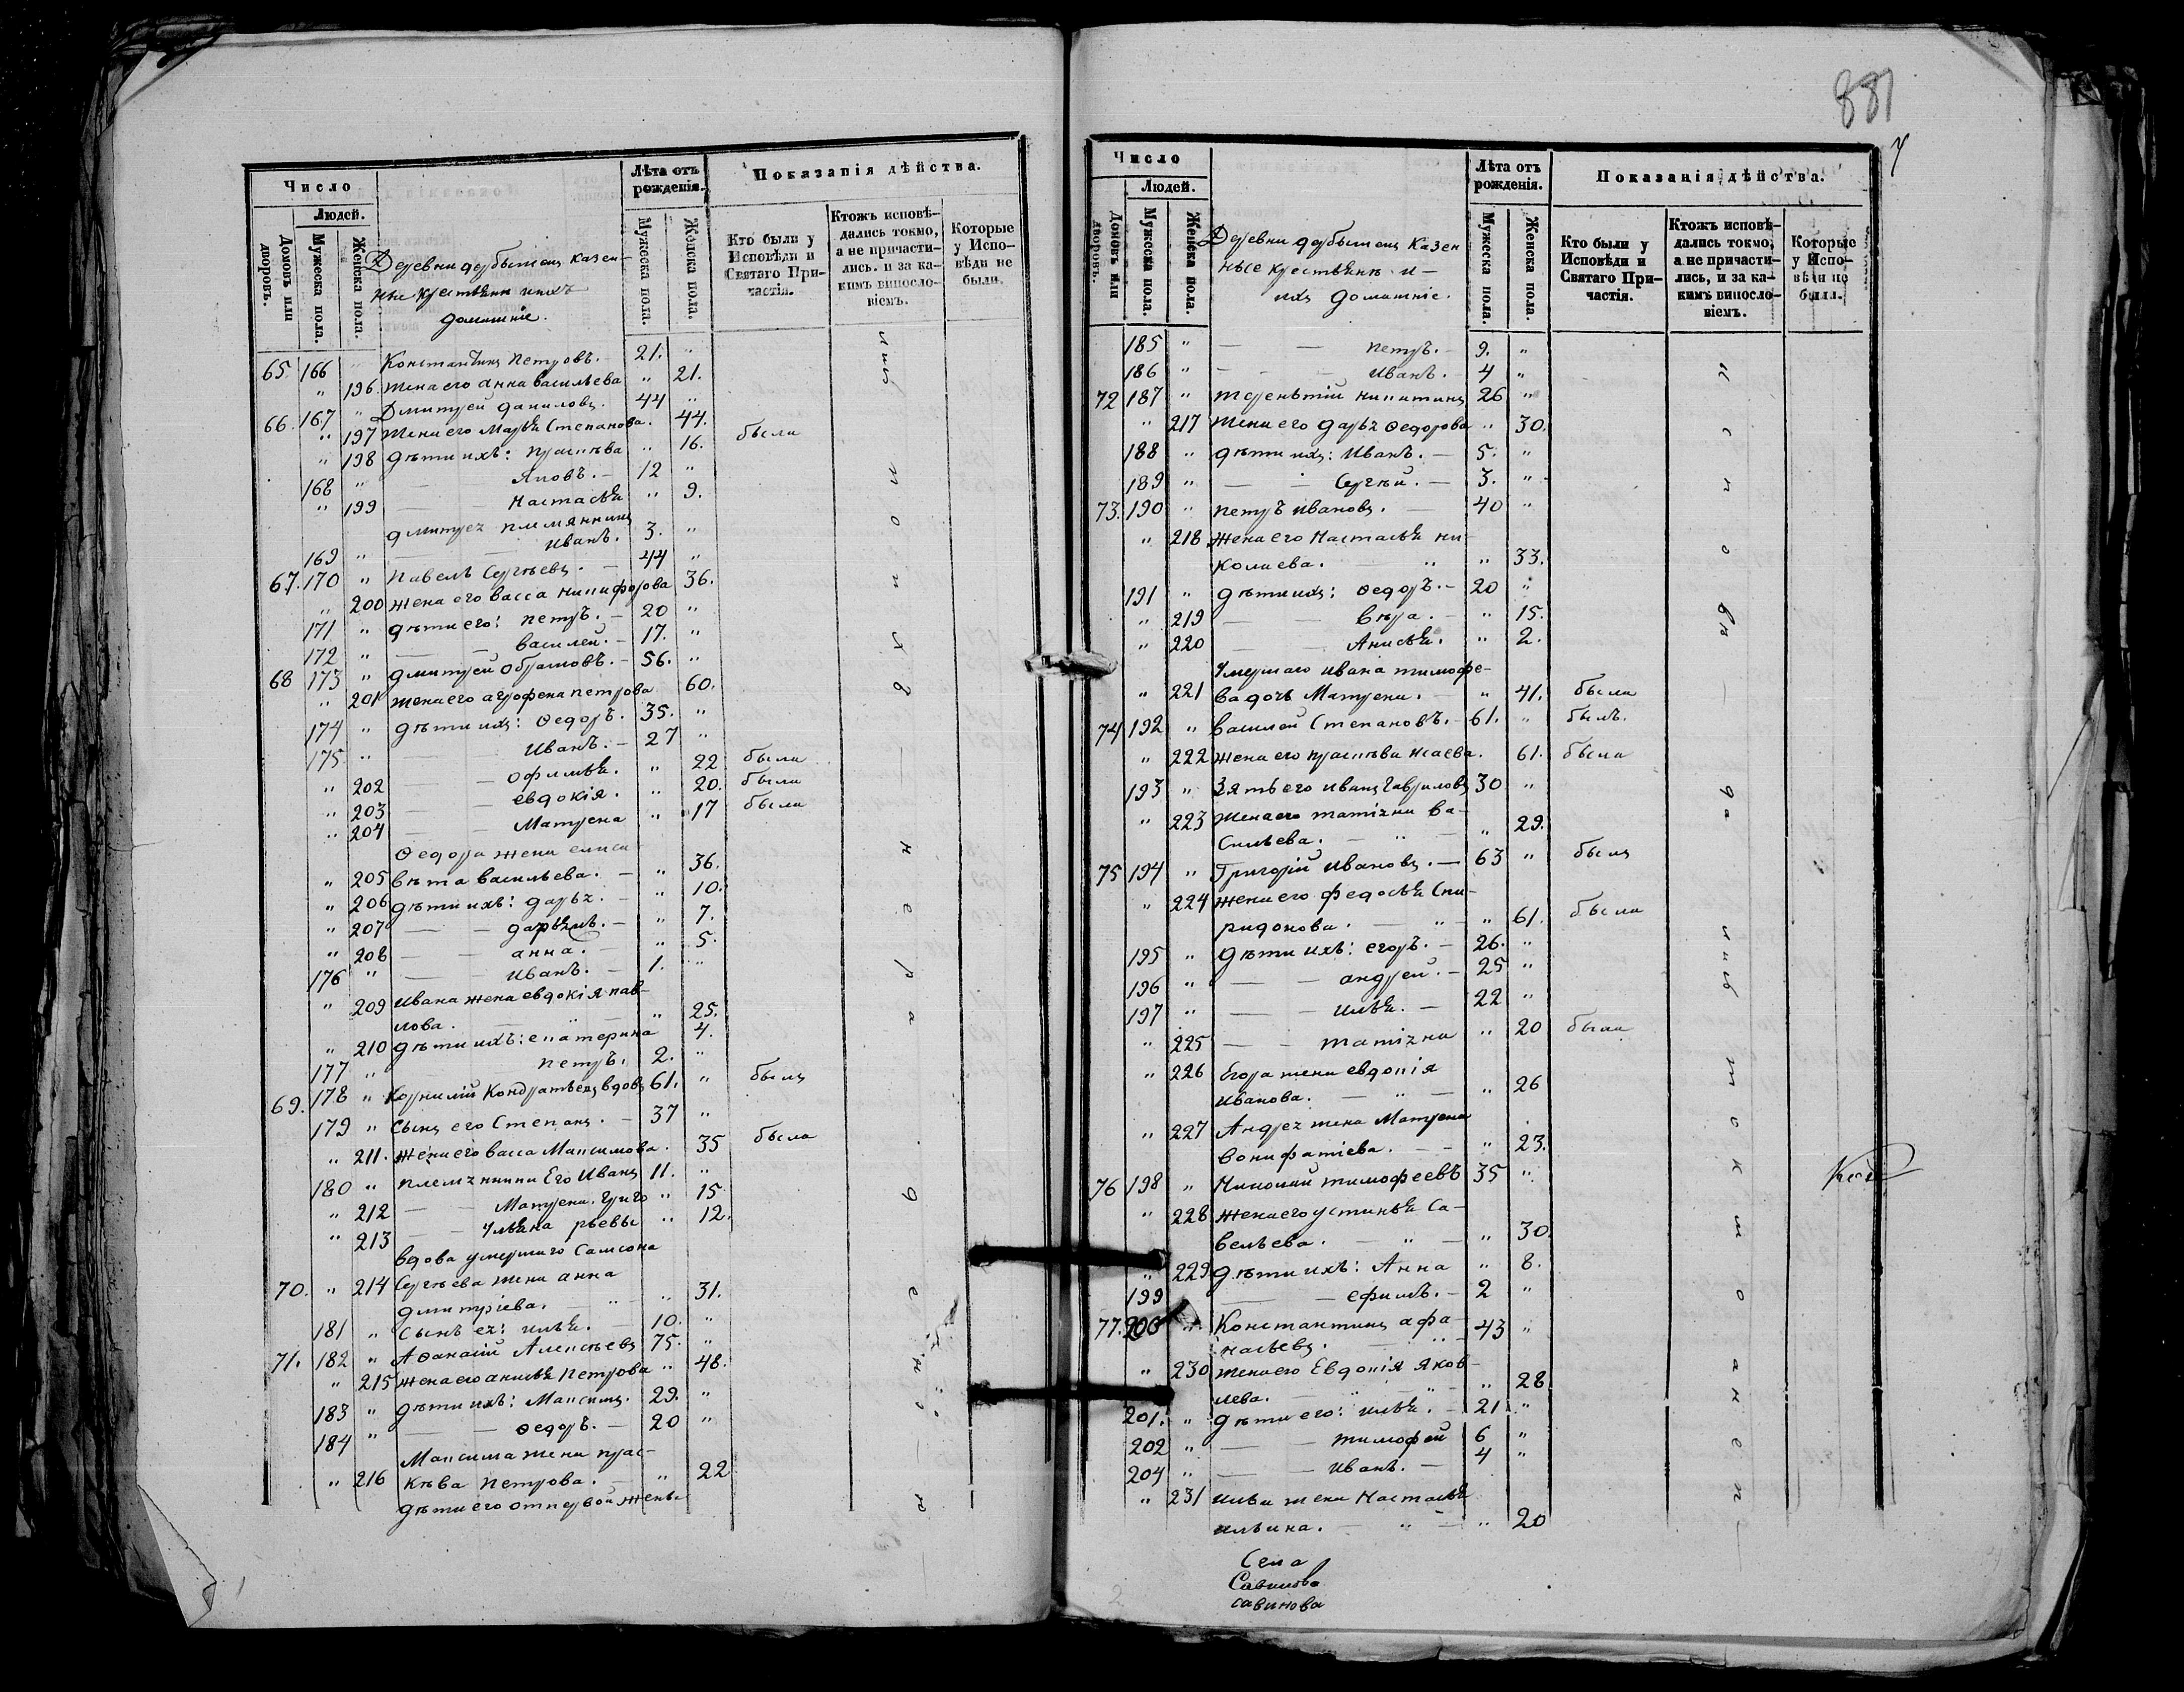 881
7
Число
Лѣта отъ рожденія.
Показанія дѣйства.
Людей.
Домовъ или дворовъ.
Мужеска пола.
Женска пола.
Мужеска пола.
Женска пола.
Кто были у Исповѣди и Святаго Причастія.
Ктожъ исповѣ-
дались токмо,
а не причасти-
лись. и за ка-
кимъ винослo-
віемъ.
Которые
у Испо-
вѣди не
были.
казен-
ные крестьяне ихъ
домашніе.
65. 166 " Константинъ Петровъ. - 21. "
" 196. жена его Анна Васильева " 21.
66. 167 " Дмитрей Даниловъ. 44 "
" 197 жена его Марья Степанова. 44.
" 198 дѣти ихъ: Прасковья " 16. была
168 " — Яковъ. - 12 "
" 199 — Настасья " 9.
Дмитрея племянникъ
169 " Иванъ. 3. "
67. 170 " Павелъ Сергѣевъ. - 44 "
" 200 жена его Васса Никифорова 36.
171 " дѣти его: Петръ. - 20 "
172 " — Василей. - 17. "
68 173 " Дмитрей Обрамовъ. - 56. "
" 201 жена его Агрофена Петрова 60.
174 " дѣти ихъ: Ѳедоръ. 35. "
175 " — Иванъ. - 27 "
" 202 — Офимья. " 22 была
" 203 — Евдокія. " 20. была
" 204 — Матрена " 17 была
Ѳедора жена Елиса
" 205 вѣта Васильева. - " 36.
" 206 дѣти ихъ: Дарья. - " 10.
" 207 — " 7.
" 208 — Анна. - " 5.
176 " — Иванъ. - 1. "
" 209 Ивана жена Евдокія Пав-
лова. " " 25.
" 210 дѣти ихъ: Екатерина 4.
177 " Петръ. 2. "
69. 178 " Корнилій Кондратьевъ вдовъ 61. " былъ
179 " Сынъ его Степанъ. - 37 "
" 211. жена его Васса Максимова. 35 была
180 " племянники Его Иванъ 11. "
" 212 — Матрена. Григо " 15
" 213 — Ульяна рьевы " 12.
вдова умершаго Самсона
70. " 214 Сергѣева жена Анна
Дмитріева. " " 31.
181 " Сынъ ея: Илья. - 10. "
71. 182 " Аѳанасій Алексѣевъ 75. "
" 215 жена его Анисья Петрова " 48.
183 " дѣти ихъ: Максимъ. 29. "
184 " — Ѳедоръ. - 20 "
Максима жена Прас-
" 216 кѣва Петрова. - " 22
дѣти его отпервой жены
Число
Лѣта отъ рожденія.
Показанія дѣйства.
Людей.
Домовъ или дворовъ.
Мужеска пола.
Женска пола.
Мужеска пола.
Женска пола.
Кто были у Исповѣди и Святаго Причастія.
Ктожъ исповѣ-
дались токмо,
а не причасти-
лись, и за ка-
кимъ винослo-
віемъ.
Которые
у Испо-
вѣди не
были.
казен
ные крестьяне и
ихъ домашніе.
185 " — Петръ. - 9. "
186 " — Иванъ. - 4 "
72 187 " Терентій Никитинъ 26 "
" 217 жена его Дарья Ѳедорова " 30.
188 " дѣти ихъ: Иванъ. - 5. "
189 " — Сергѣй. - 3. "
73. 190 " Петръ Ивановъ. — 40 "
" 218 жена его Настасья Ни-
колаева. " " 33.
191 " дѣти ихъ: Ѳедоръ. - 20 "
" 219 — Вѣра. - " 15.
" 220 — Анисья. " 2.
Умершаго Ивана Тимофе-
" 221 ва дочь Матрена. - " 41. была
74 192 " Василей Степановъ. - 61. " былъ.
" 222 жена его Прасковья Исаева. 61. была
193 " Зять его Иванъ Гавриловъ 30 "
" 223 жена его Татіяна Ва-
сильева. — " — " 29.
75 194 " Григорій Ивановъ. — 63 " былъ
" 224 жена его Федосья Спи-
ридонова. — " — " 61. была
195 " дѣти ихъ: Егоръ. - 26. "
196 " — Андрей. - 25 "
197 " — Илья. - 22 "
" 225 — Татіяна " 20 была
" 226 Егора жена Евдокія
Иванова. — " — " 26
" 227 Андрея жена Матрена
Вонифатіева. - " 23.
76 198 " Николай Тимофеевъ 35 "
" 228 жена его Устинья Са-
вельева. — " — " 30
" 229 дѣти ихъ: Анна " 8.
199 — Ефимъ. - 2 "
77. 200 " Константинъ Афа-
насьевъ. — " 43 "
" 230 жена его Евдокія Яков-
лева. — " — " 28
201. " дѣти его: Илья. - 21 "
202 " — Тимофей 6 "
204 " — Иванъ. - 4 "
" 231 Ильи жена Настасья
Ильина. — " — " 20
Села
Савинова
савинова